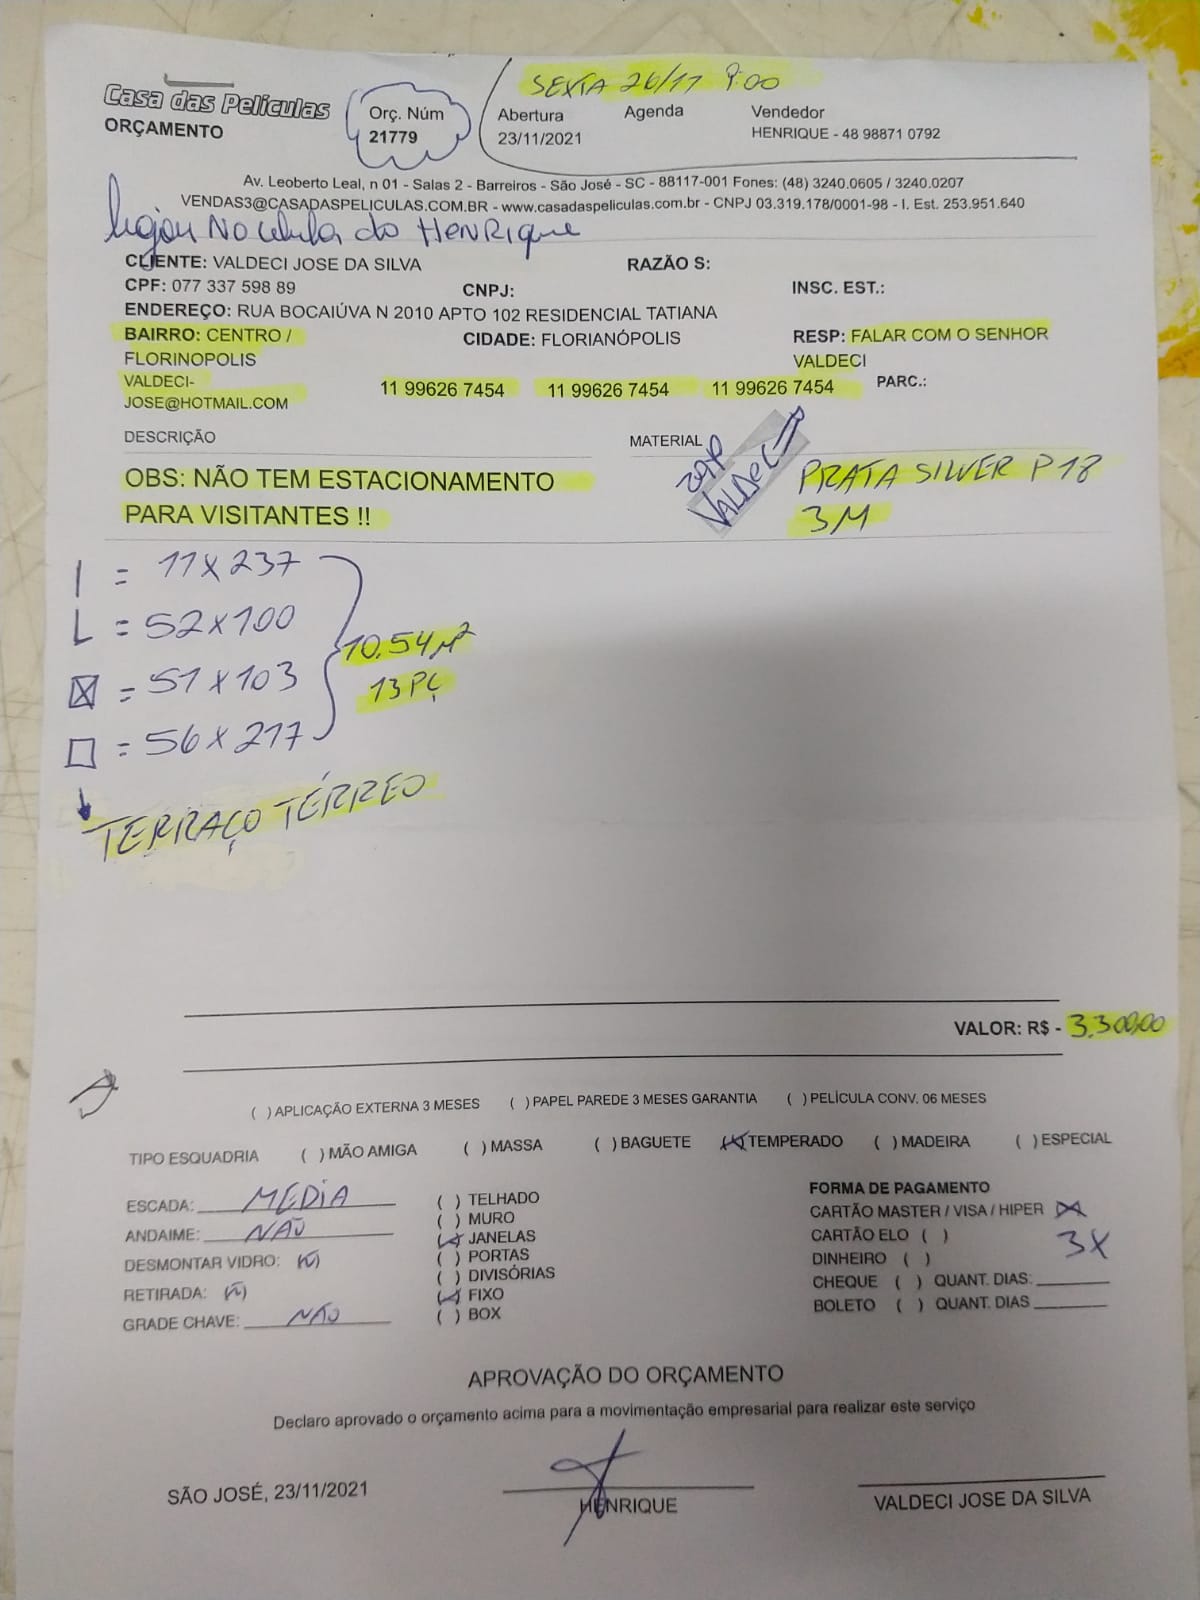 SEXTA 26/11 9:00
Casa das Películas
ORÇAMENTO
Orç. Núm
21779
Abertura
23/11/2021
Agenda
Vendedor
HENRIQUE - 48 98871 0792
Av. Leoberto Leal, n 01 - Salas 2 - Barreiros - São José - SC - 88117-001 Fones: (48) 3240.0605 / 3240.0207
VENDAS3@CASADASPELICULAS.COM.BR - www.casadaspeliculas.com.br - CNPJ 03.319.178/0001-98 - I. Est. 253.951.640
ligou No do HENRique
CLIENTE: VALDECI JOSE DA SILVA RAZÃO S:
CPF: 077 337 598 89 CNPJ: INSC. EST.:
ENDEREÇO: RUA BOCAIÚVA N 2010 APTO 102 RESIDENCIAL TATIANA
BAIRRO: CENTRO / CIDADE: FLORIANÓPOLIS RESP: FALAR COM O SENHOR
FLORINOPOLIS VALDECI
VALDECI- 11 99626 7454 11 99626 7454 11 99626 7454 PARC.:
JOSE@HOTMAIL.COM
DESCRIÇÃO MATERIAL
VALDECI
PRATA SILVER P18
3M
OBS: NÃO TEM ESTACIONAMENTO
PARA VISITANTES !!
1 = 11X237
L = 52X100
= 51X103
= 56X217
10.54M²
13PÇ
TERRAÇO TÉRREO
VALOR: R$ - 3.300,00
( ) APLICAÇÃO EXTERNA 3 MESES ( ) PAPEL PAREDE 3 MESES GARANTIA ( ) PELÍCULA CONV. 06 MESES
TIPO ESQUADRIA ( ) MÃO AMIGA ( ) MASSA ( ) BAGUETE (X) TEMPERADO ( ) MADEIRA ( ) ESPECIAL
ESCADA: MEDIA
ANDAIME: NÃO
DESMONTAR VIDRO: (Ñ)
RETIRADA: (Ñ)
GRADE CHAVE: NÃO
( ) TELHADO
( ) MURO
(X) JANELAS
( ) PORTAS
( ) DIVISÓRIAS
(X) FIXO
( ) BOX
FORMA DE PAGAMENTO
CARTÃO MASTER / VISA / HIPER (X)
CARTÃO ELO ( ) 3X
DINHEIRO ( )
CHEQUE ( ) QUANT. DIAS:
BOLETO ( ) QUANT. DIAS
APROVAÇÃO DO ORÇAMENTO
Declaro aprovado o orçamento acima para a movimentação empresarial para realizar este serviço
SÃO JOSÉ, 23/11/2021
HENRIQUE
VALDECI JOSE DA SILVA